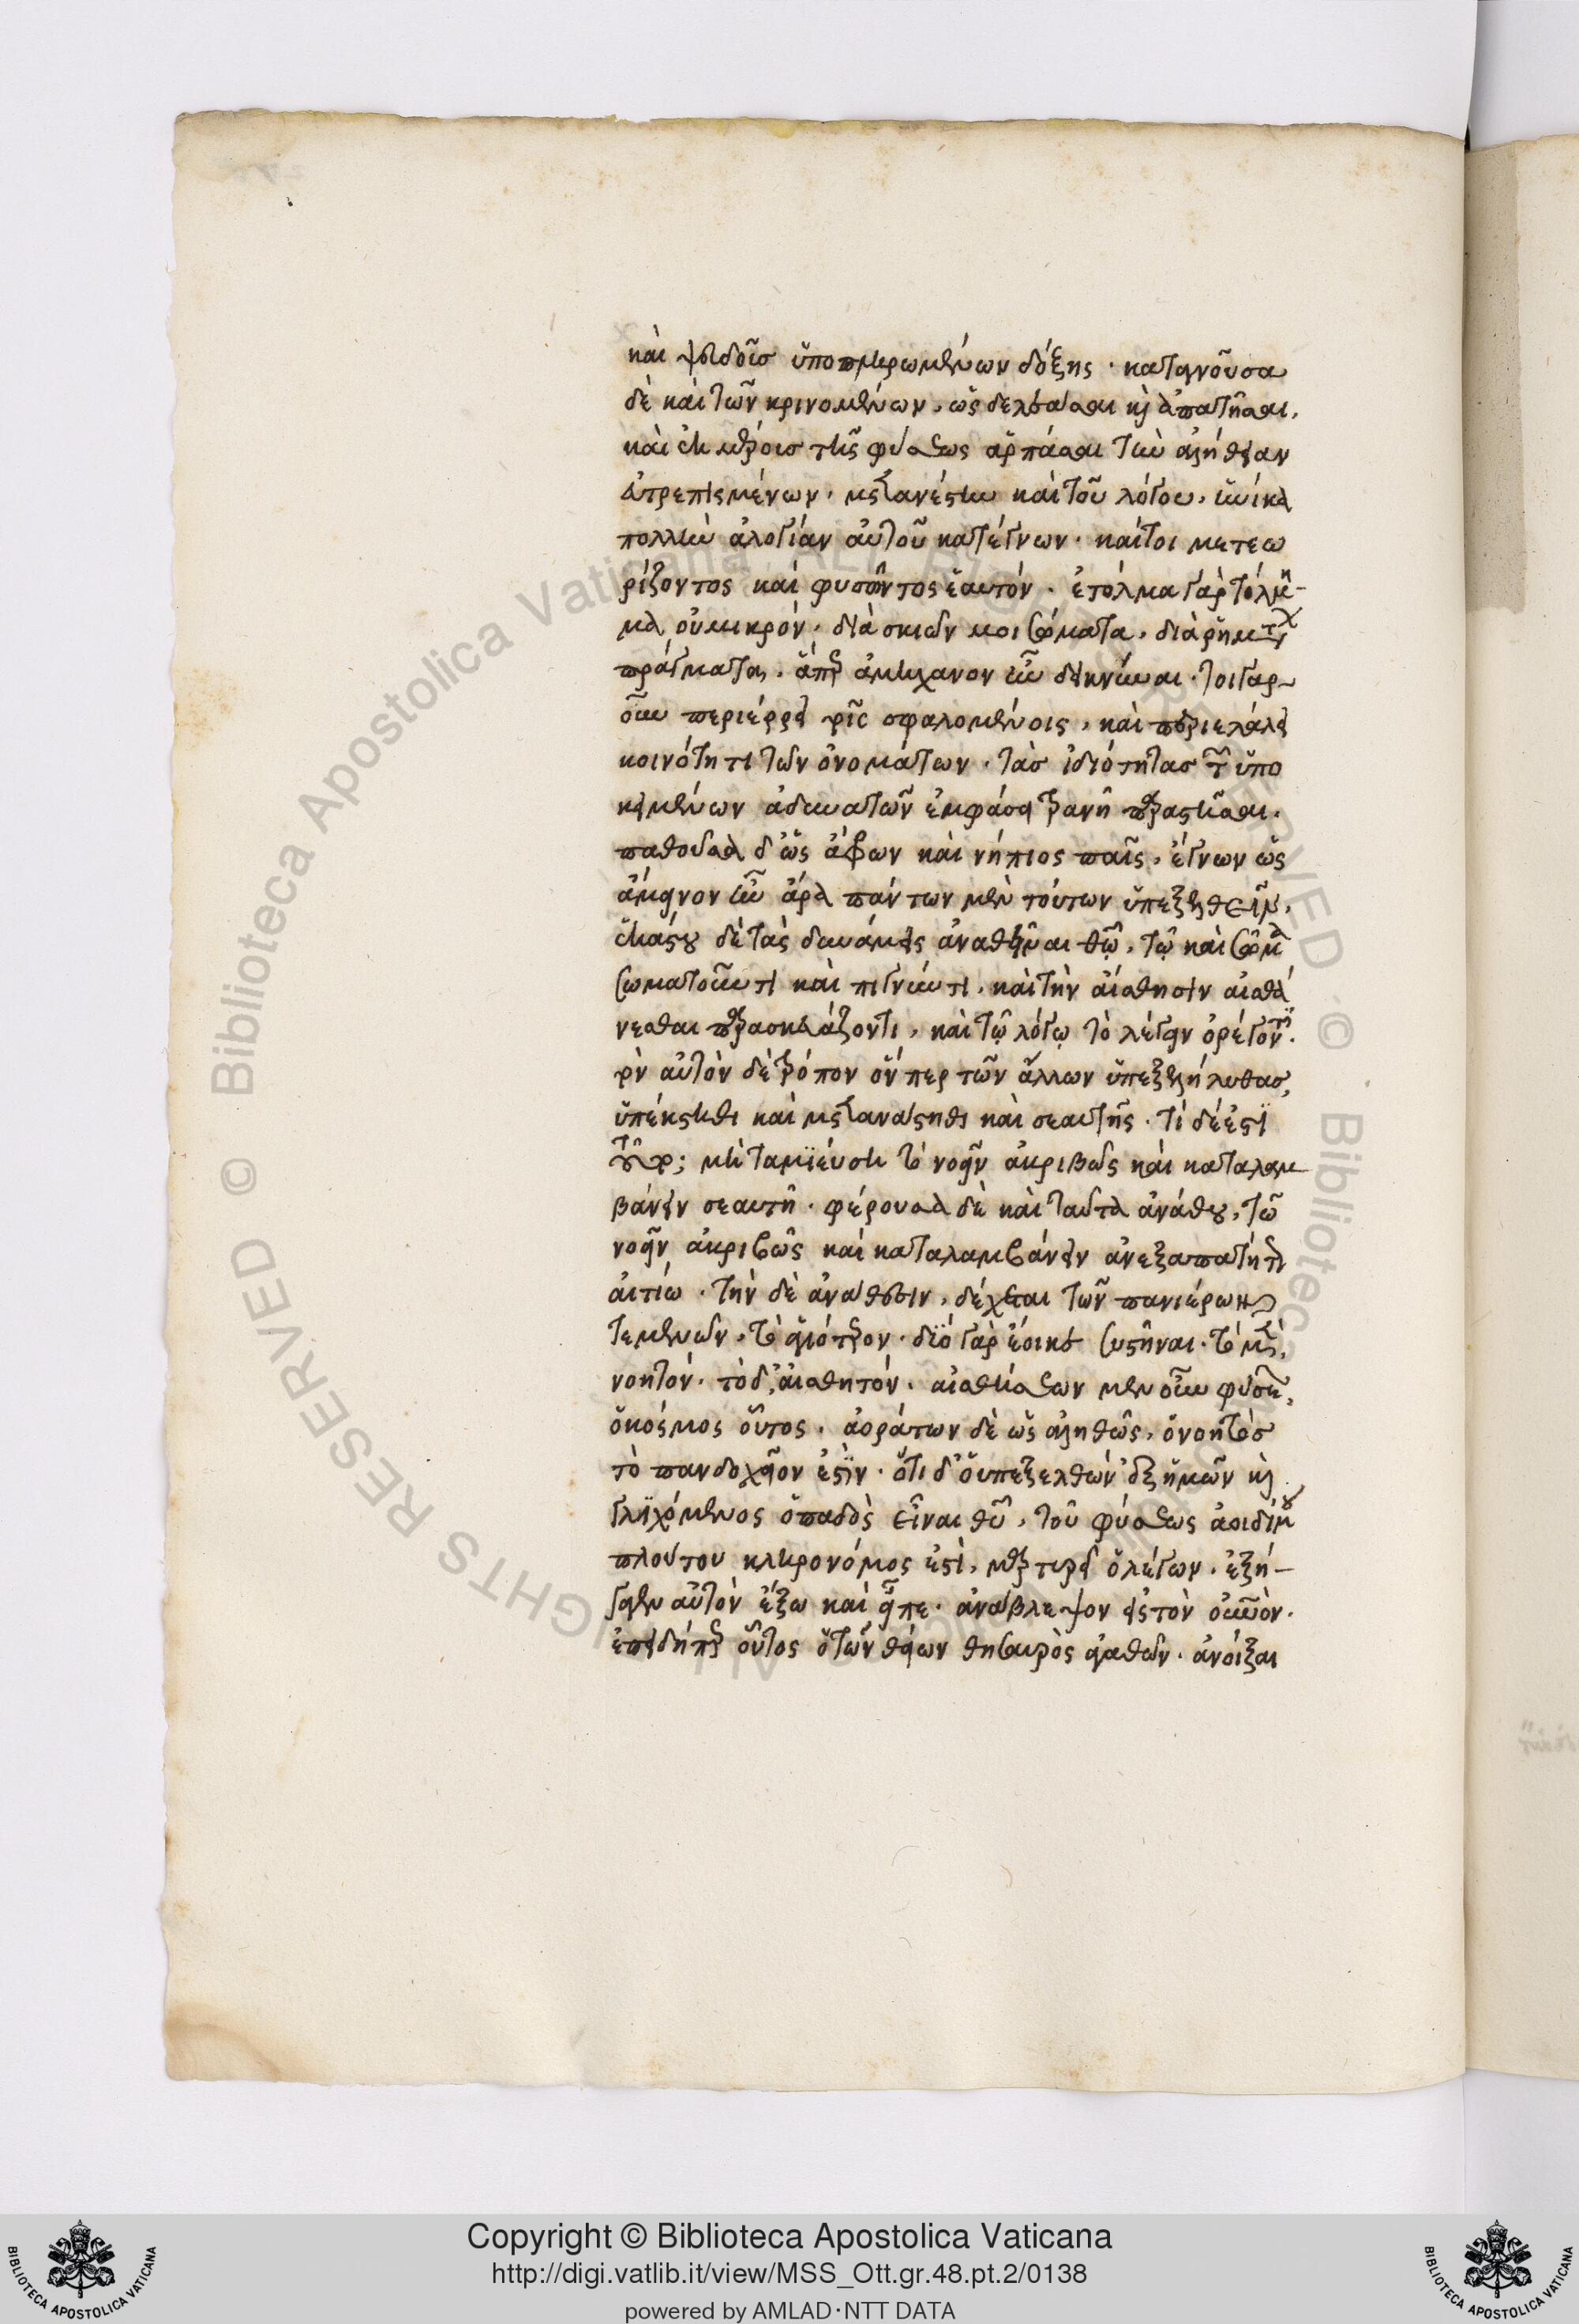 καὶ ψευδοῦσ ὑποπληρωμένων δόξης · καταγνοῦσα
δὲ καὶ τῶν κρινομένων, ὡς δελεάσαι κὶ ἀπατῆσαι,
καὶ ἐκ μέροισ τῆς φύσεως ἁρπάσαι τὴν ἀλήθειαν
εὐτρεπισμένων · μετανέστην καὶ τοῦ λόγου, ἡνίκα
πολλὴν ἀλογίαν αὐτοῦ κατέγνων · καίτοι μετεω
ρίζοντος καὶ φυσῶντος ἑαυτόν · ἐτόλμα γὰρ τόλμη-
μα οὐ μικρόν · διὰ σκιῶν μοι σώματα, διὰ ῥημάτων
πράγματα, ἅπερ ἀμήχανον ἦν δεικνύναι · τοιγαρ
οῦν περιέρρει τοῖς σφαλομένοις, καὶ περιελάλει
κοινότητι τῶν ὀνομάτων · τὰσ ἰδιότητασ τῶν ὑπο
κειμένων ἀδυνατῶν ἐμφάσει τρανῆ παραστῆσαι ·
παθοῦσα δ' ὡς ἄφρων καὶ νήπιος παῖς, ἔγνων ὡς
ἄμεινον ἦν ἄρα πάντων μὲν τούτων ὑπεξελθεῖν,
ἑκάστου δὲ τὰς δυνάμεις ἀναθεῖναι θῶ, τῷ καὶ σῶμα
σωματοῦντι καὶ πιγνύντι, καὶ τὴν αἴσθησιν αἰσθά
νεσθαι παρασκευάζοντι, καὶ τῷ λόγῳ τὸ λέγειν ὀρέγοντι ·
τὸν αὐτὸν δὲ τρόπον ὅνπερ τῶν ἄλλων ὑπεξελήλυθας,
ὑπέκστηθι καὶ μετανάστηθι καὶ σεαυτῆς · τί δέ ἐστι
τοῦτο; μὴ ταμιεύση τὸ νοεῖν ἀκριβῶς καὶ καταλαμ
βάνειν σεαυτῆ · φέρουσα δὲ καὶ ταῦτα ἀνάθου, τῶ
νοεῖν ἀκριβῶς καὶ καταλαμβάνειν ἀνεξαπατήτως
αἰτίω · τὴν δὲ ἀνάθεσιν, δέχεται τῶν πανιέρων
τεμενῶν, τὸ ἁγιότερον · δύο γὰρ ἔοικε συστῆναι · τὸ μὲν,
νοητόν · τὸ δ', αἰσθητόν · αἰσθήσεων μὲν οὖν φύσεως,
ὁ κόσμος οὗτος · ἀοράτων δὲ ὡς ἀληθῶς, ὁ νοητὸσ
τὸ πανδοχεῖον ἐστὶν · ὅτι δ' ὁ ὑπεξελθὼν ἐξ ἡμῶν κὶ
γλιχόμενος ὀπαδὸς εἶναι θῦ, τοῦ φύσεως ἀοιδίμου
πλούτου κληρονόμος ἐστὶ, μαρτυρεῖ ὁ λέγων · ἐξή-
γαγεν αὐτὸν ἔξω καὶ εἶπε · ἀνάβλεψον εἰς τὸν οὐνὸν ·
ἐπειδήπερ οὗτος ὁ τῶν θείων θησαυρὸς ἀγαθῶν · ἀνοίξαι
Copyright © Biblioteca Apostolica Vaticana
http://digi.vatlib.it/view/MSS_Ott.gr.48.pt.2/0138
powered by AMLAD·NTT DATA